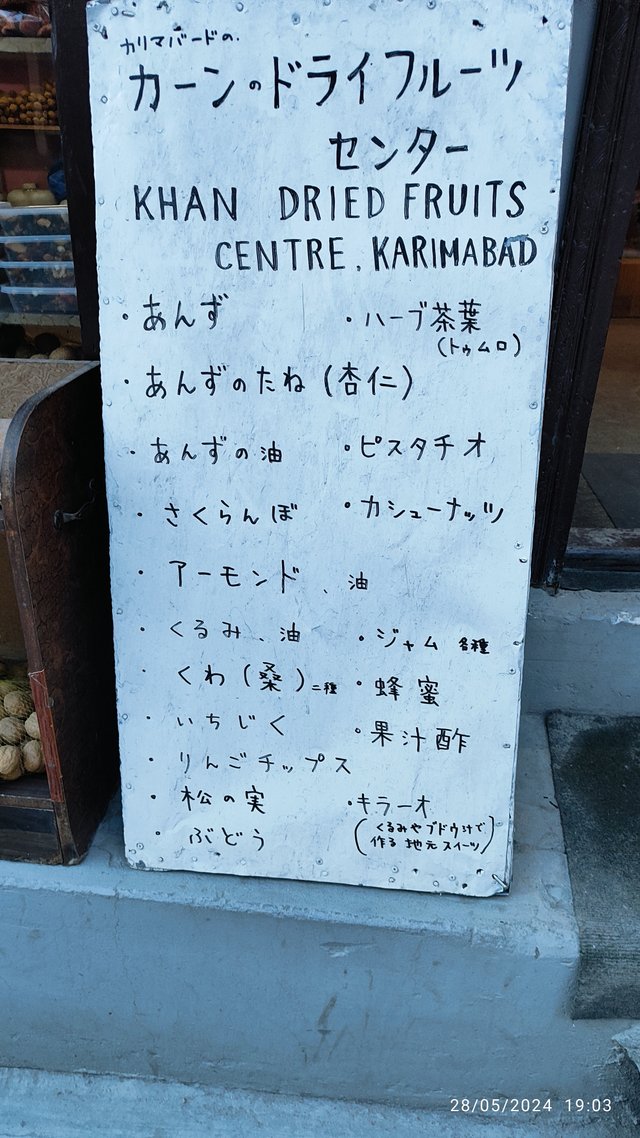 カリマバードの.
カーンのドライフルーツ
センター
KHAN DRIED FRUITS
CENTRE, KARIMABAD
・あんず
・あんずのたね(杏仁)
・あんずの油
・さくらんぼ
・アーモンド、油
・くるみ、油
・くわ(桑)二種
・いちじく
・りんごチップス
・松の実
・ぶどう
・ハーブ茶葉
(トゥムロ)
・ピスタチオ
・カシューナッツ
・ジャム 各種
・蜂蜜
・果汁酢
・キラーオ
(くるみやブドウ汁で
作る地元スイーツ)
28/05/2024 19:03